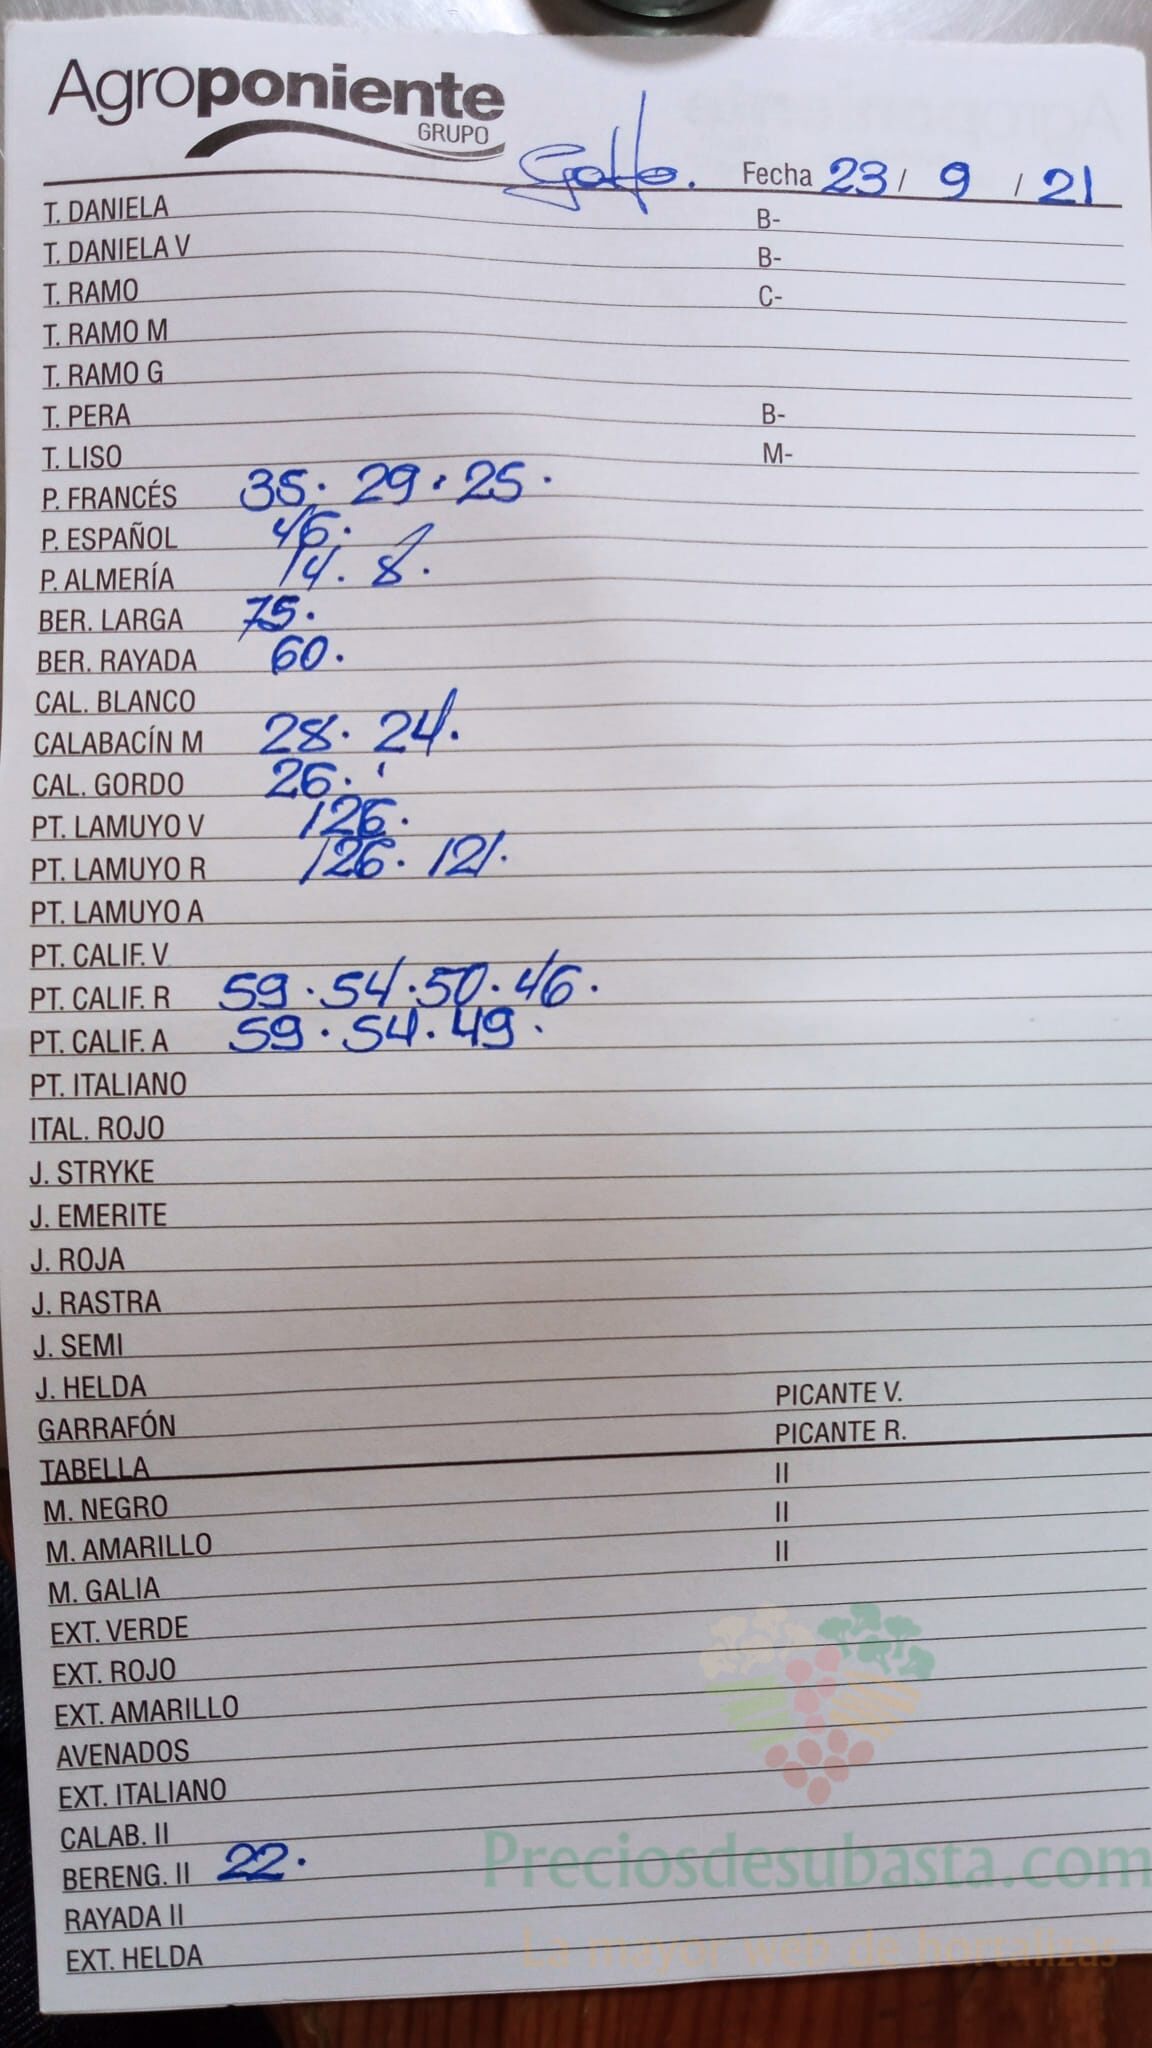 Agroponiente
GRUPO
Golfo. Fecha 23 / 9 / 21
T. DANIELA B-
T. DANIELA V B-
T. RAMO C-
T. RAMO M
T. RAMO G
T. PERA B-
T. LISO M-
P. FRANCÉS 35. 29. 25.
P. ESPAÑOL 46.
P. ALMERÍA 14. 8.
BER. LARGA 75.
BER. RAYADA 60.
CAL. BLANCO
CALABACÍN M 28. 24.
CAL. GORDO 26.
PT. LAMUYO V 126.
PT. LAMUYO R 126. 121.
PT. LAMUYO A
PT. CALIF. V
PT. CALIF. R 59. 54. 50. 46.
PT. CALIF. A 59. 54. 49.
PT. ITALIANO
ITAL. ROJO
J. STRYKE
J. EMERITE
J. ROJA
J. RASTRA
J. SEMI
J. HELDA PICANTE V.
GARRAFÓN PICANTE R.
TABELLA II
M. NEGRO II
M. AMARILLO II
M. GALIA
EXT. VERDE
EXT. ROJO
EXT. AMARILLO
AVENADOS
EXT. ITALIANO
CALAB. II
BERENG. II 22.
RAYADA II
EXT. HELDA
Preciosdesubasta.com
La mayor web de hortalizas